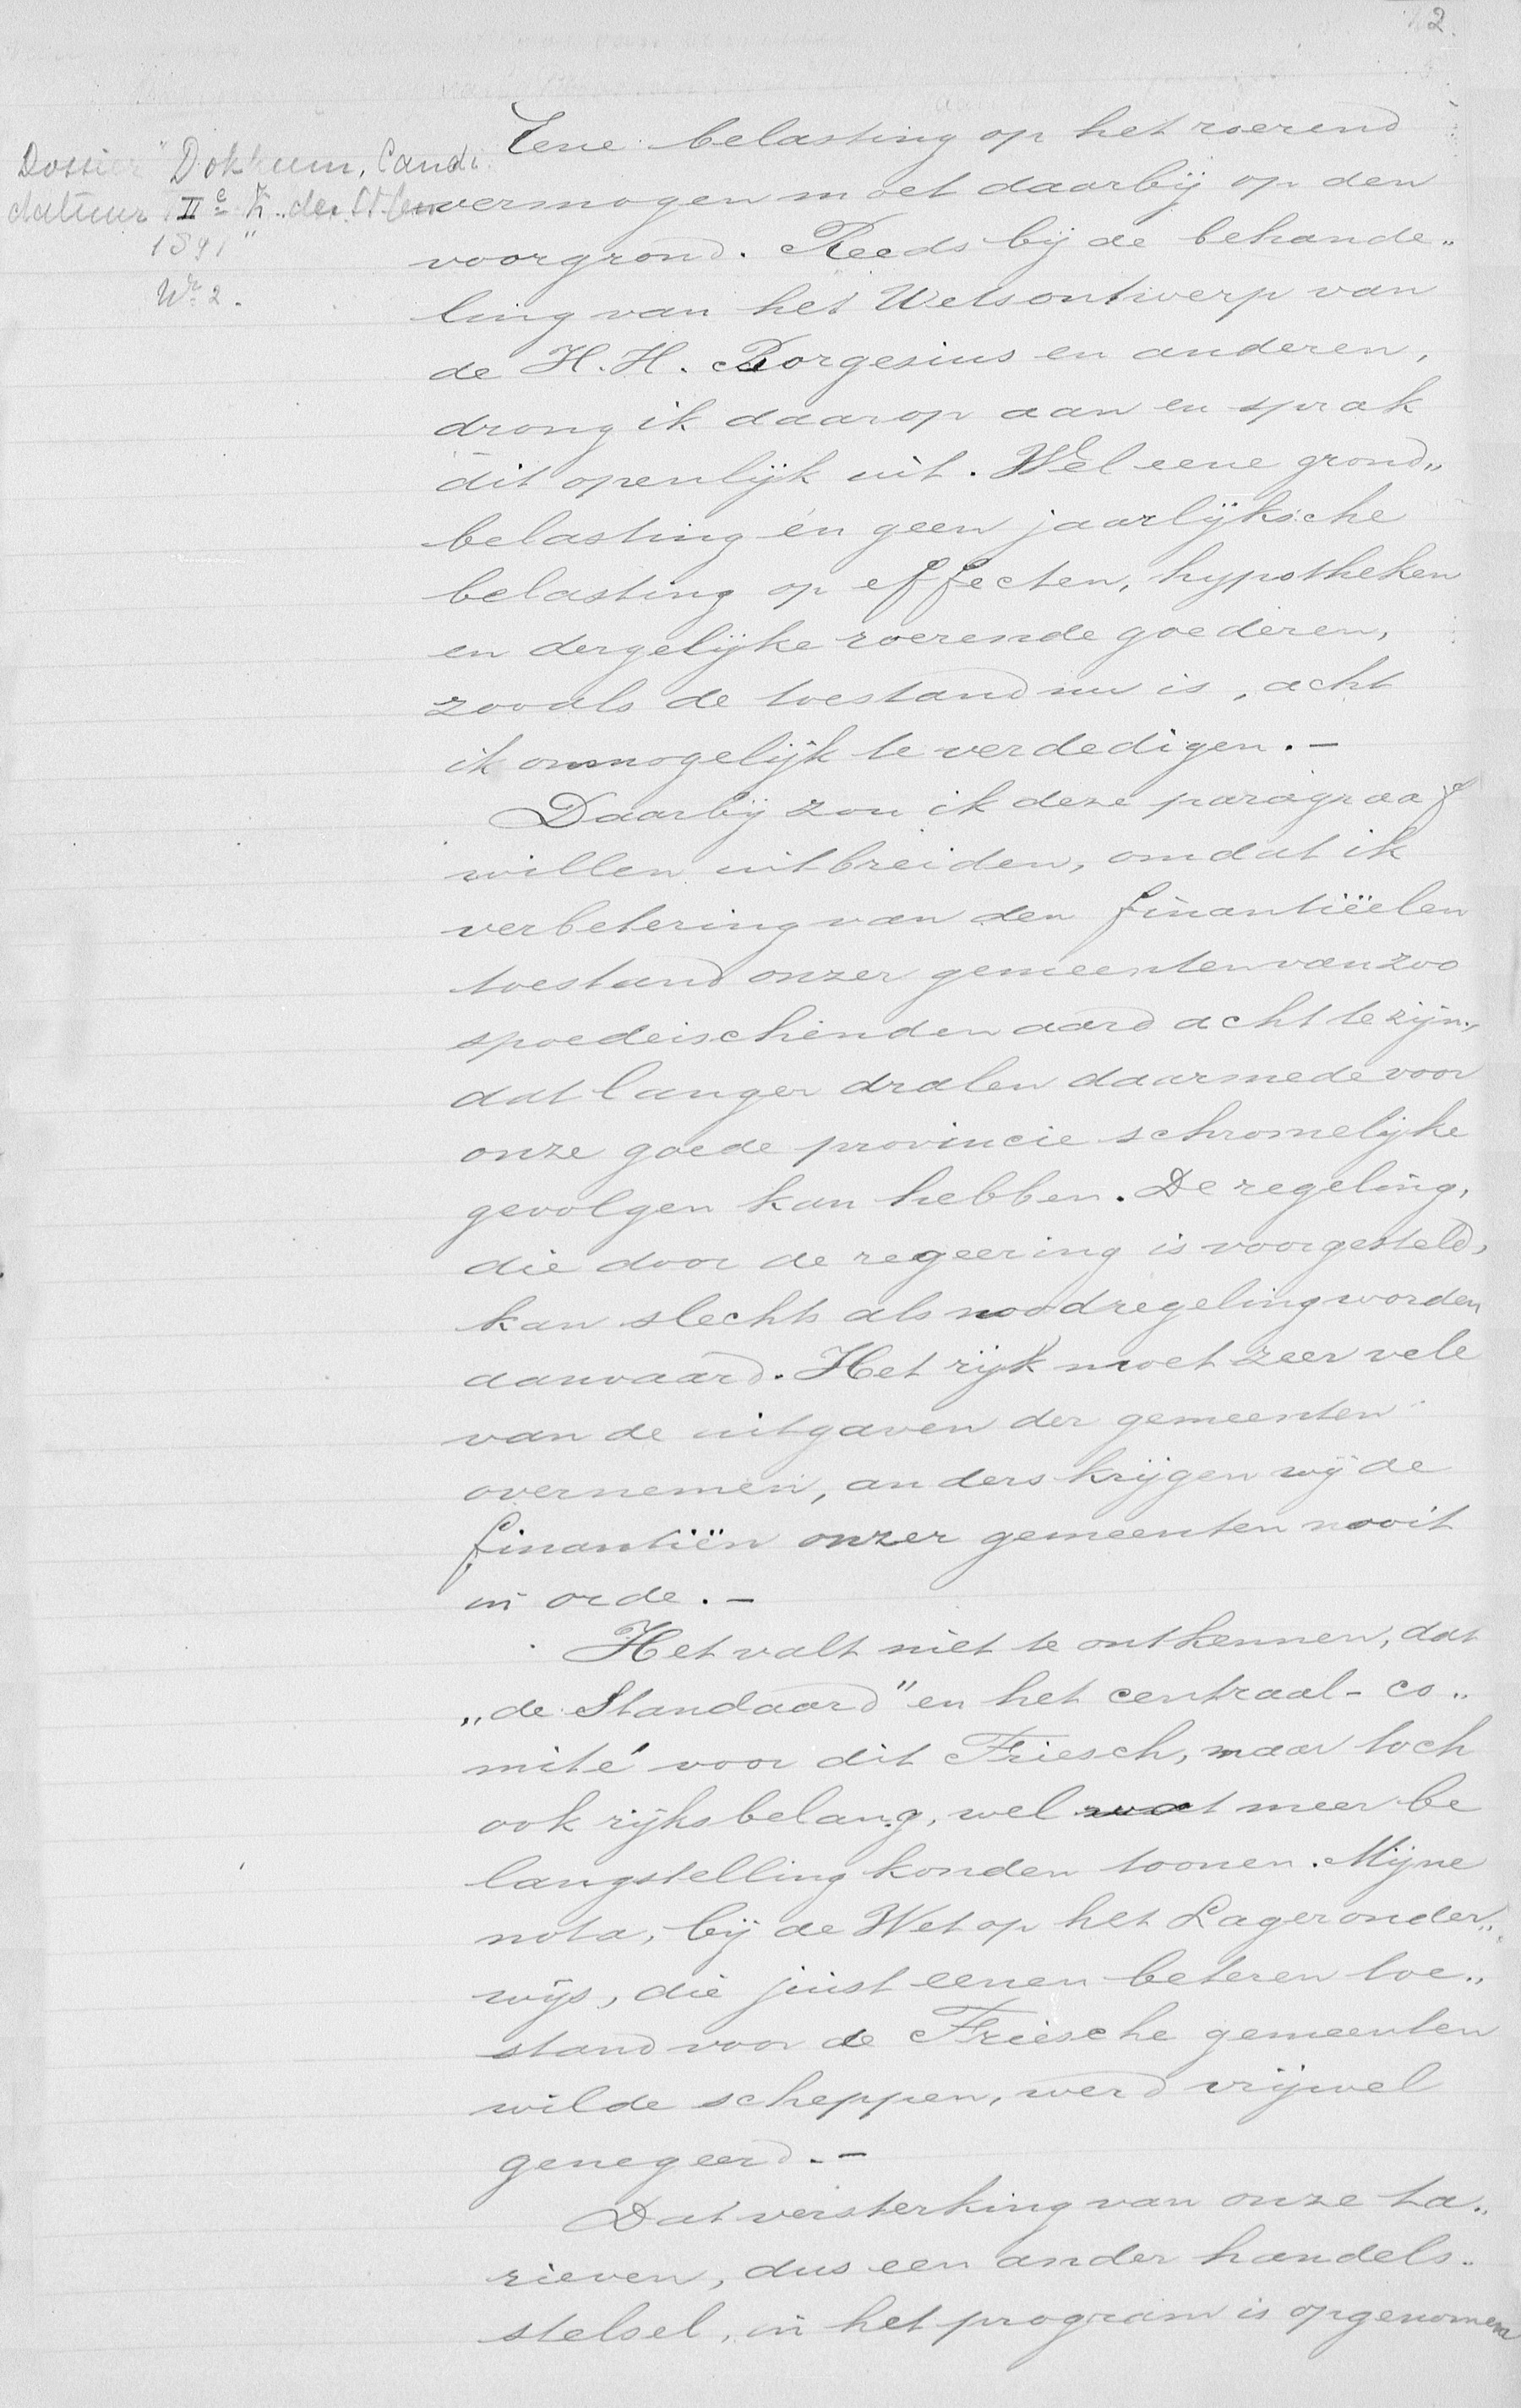 2.
Dossier "Dokkum, Candi
datuur IIe K. der St. Gen
1891"
No 2.
Eene belasting op het roerend
vermogen moet daarbij op den
voorgrond. Reeds bij de behande„
ling van het Wetsontwerp van
de H.H. Borgesius en anderen,
drong ik daarop aan en sprak
dit openlijk uit. Wel eene grond„
belasting én geen jaarlijksche
belasting op effecten, hypotheken
en dergelijke roerende goederen,
zooals de toestand nu is, acht
ik onmogelijk te verdedigen. –
Daarbij zou ik deze paragraaf
willen uitbreiden, omdat ik
verbetering van den finantiëelen
toestand onzer gemeenten van zoo
spoedeischenden aard acht te zijn,
dat langer dralen daarmede voor
onze goede provincie schromelijke
gevolgen kan hebben. De regeling,
die door de regeering is voorgesteld,
kan slechts als noodregeling worden
aanvaard. Het rijk moet zeer vele
van de uitgaven der gemeenten
overnemen, anders krijgen wij de
finantiën onzer gemeenten nooit
in orde. –
Het valt niet te ontkennen, dat
„de Standaard" en het centraal-co„
mité voor dit Friesch, maar toch
ook rijksbelang, wel wat meer be
langstelling konden toonen. Mijne
nota, bij de Wet op het Lager onder„
wijs, die juist eenen beteren toe„
stand voor de Friesche gemeenten
wilde scheppen, werd vrijwel
genegeerd. –
Dat versterking van onze ta„
rieven, dus een ander handels„
stelsel, in het program is opgenomen